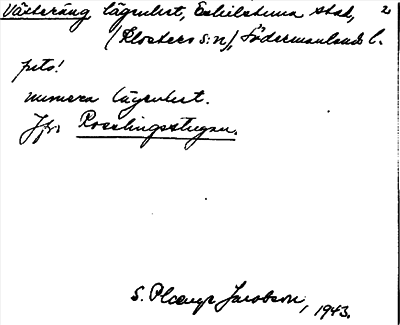 Västeräng lägenhet, Eskilstuna stad, 2
(Klosters s:n), Södermanlands l.
pets!
numera lägenhet.
Jfr Roselingsstugan.
S. Plaenge Jacobson, 1943.